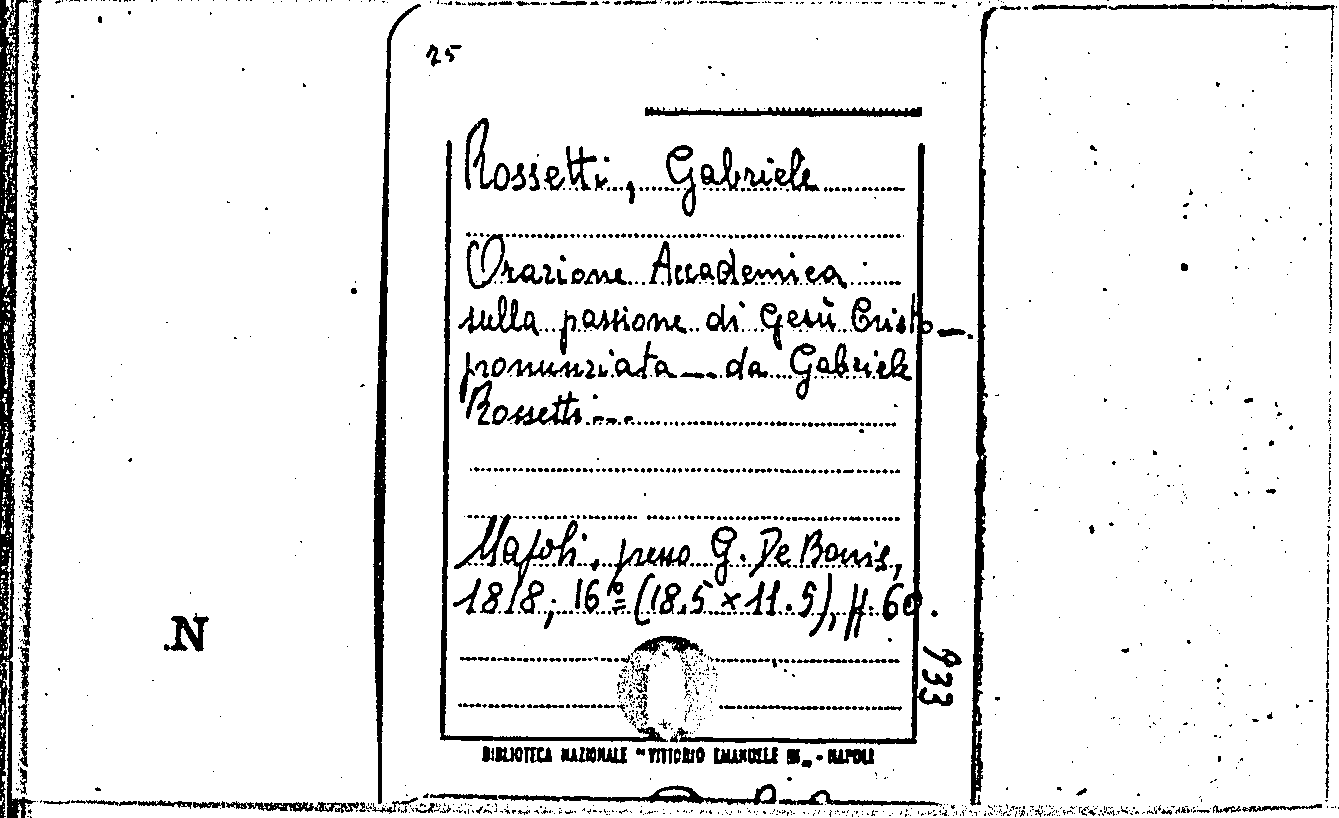 25
Rossetti, Gabriele
Orazione Accademica
sulla passione di Gesù Cristo —
pronunziata — da Gabriele
Rossetti ---
Napoli, presso G. De Bonis,
1818; 16º (18.5 × 11.5), pp. 60.
933
N
BIBLIOTECA NAZIONALE "VITTORIO EMANUELE III„ - NAPOLI